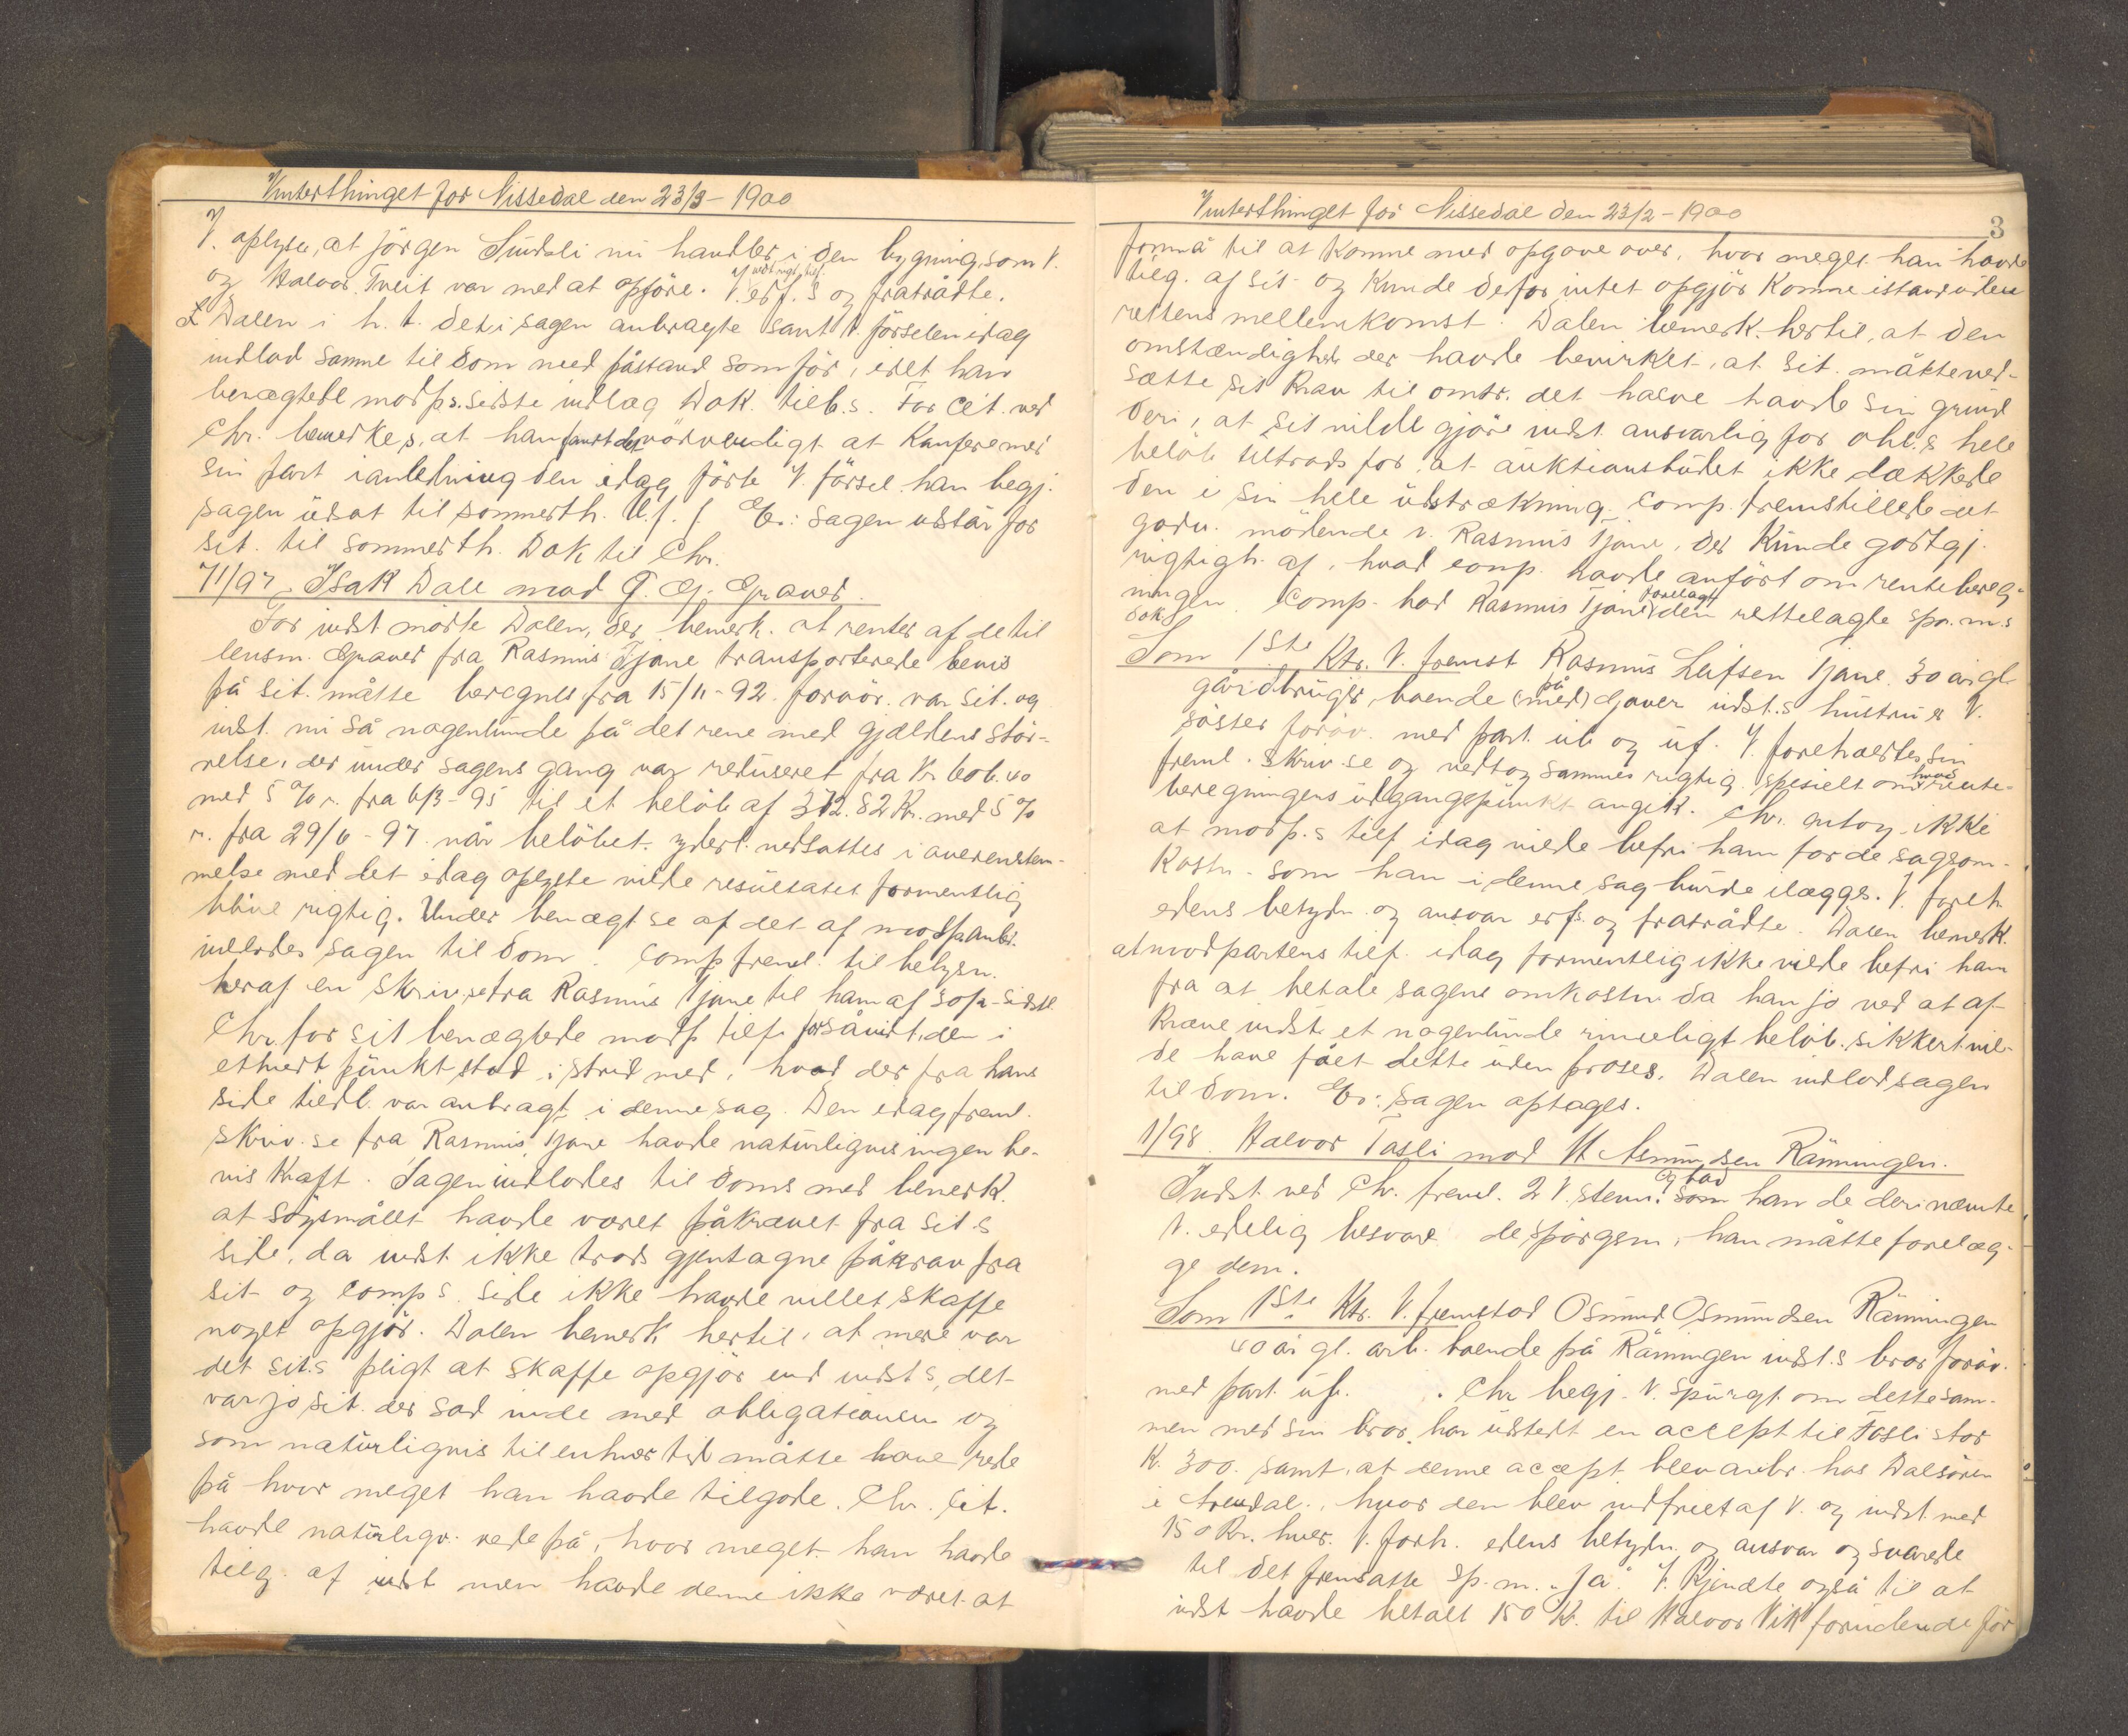 Vinterthinget for Nissedal den 23/3 - 1900
V. oplyser, at Jörgen Sundsli nu handler i den bygning, som V.
og Halvor Tveit var med at opföre. V. erf. s og fratrådte.
Dalen i h. t. det i sagen anbragte samt V. förselen idag
indlod samme til dom med påstand som för, idet han
benægtede modp.s. sidste indlæg Dok. tilb.s. For Cit. ved
Chr. bemerkes, at han fandt det nödvendigt at konferere med
sin part i anledning den idag förte V. försel. han begj.
sagen udsat til sommerth. U. f. f. Er: sagen udstår for
sit. til sommerth. Dok til Chr.
71/97. Isak Dale mod G. G. Graver.
For indst mödte Dalen, der bemerk. at renter af de til
lensm. Graver fra Rasmus Tjane transporterede bevis
på sit. måtte beregnes fra 15/11-92. foröv. var sit. og
indst. nu så nogenlunde på det rene med gjældens stör-
relse, der under sagens gang var reduseret fra Kr 606.40
med 5 % r. fra 6/3-95 til et belöb af 372.82 Kr. med 5 %
r. fra 29/6-97. når belöbet yderl. nedsattes i overenstem-
melse med det idag oplyste vilde resultatet formentlig
blive rigtig. Under benægt.se af det af modp. anbr.
indlodes sagen til dom. Comp freml. til belysn.
heraf en skriv.se fra Rasmus Tjane til ham af 30/12 sidstl.
Chr. for sit benægtede modp tilf. forsåvidt den i
ethvert punkt stod i strid med, hvad der fra hans
side tidl. var anbragt i denne sag. Den idag freml.
skriv.se fra Rasmus Tjane havde naturligvis ingen be-
vis kraft. Sagen indlodes til doms med bemerk.
at sögsmålet havde været påkrævet fra sit.s
side, da indst ikke trods gjentagne påkrav fra
sit og comp s. side ikke havde villet skaffe
noget opgjör. Dalen bemerk. hertil, at mere var
det sit.s pligt at skaffe opgjör end indst s, det
var jo sit. der sad inde med obligationen og
som naturligvis til enhver tid måtte have rede
på hvor meget han havde tilgode. Chr. Cit.
havde naturligv. rede på, hvor meget han havde
tilg. af indst men havde denne ikke været at
Vinterthinget for Nissedal den 23/2 - 1900
3
formå til at komme med opgave over, hvor meget han havde
tilg. af sit og kunde derfor intet opgjör komme istand uden
rettens mellemkomst. Dalen bemerk. hertil, at den
omstændighed der havde bevirket, at sit. måtte ned-
sætte sit krav til omtr. det halve havde sin grund
deri, at sit vilde gjöre indst ansvarlig for obl.s hele
belöb tiltrods for, at auktionsbudet ikke dækkede
den i sin hele udstrækning. Comp. fremstillede det
godv. mödende v. Rasmus Tjane, der kunde godtgj.
rigtigh. af, hvad comp. havde anfört om rentebereg-
ningen. Comp. har Rasmus Tjane forelagt den rettelagte spr. m.s
dok.
Som 1ste Ktr. V. fremst Rasmus Leifsen Tjane 30 år gl.
gårdbruger, boende (med) på Graver indst.s hustru er V.
söster foröv. med part. ub og uf. V. foreholdtes sin
freml. skriv.se og vedtog sammes rigtig. spesielt om hvad rente-
beregningens udgangspunkt angik. Chr. antog ikke
at modp.s tilf idag vilde befri ham for de sagsom-
kostn. som han i denne sag burde ilægges. V. foreh.
edens betydn. og ansvar erf.s. og fratrådte. Dalen bemerk.
at modpartens tilf. idag formentlig ikke vilde befri ham
fra at betale sagens omkostn. da han jo ved at af-
kræve indst. et nogenlunde rimeligt belöb, sikkert vil-
de have fået dette uden proses. Dalen indlod sagen
til dom. Er: sagen optages.
1/98. Halvor Tasli mod H. Asmundsen Ränningen.
Indst. ved Chr. freml. 2 V. stevn. og bad som han de deri nævnte
V. edelig besvare de spörgsm, han måtte forelæg-
ge dem.
Som 1ste Ktr. V. fremstod Osmund Osmundsen Ränningen
40 år gl. arb. boende på Räningen indst.s bror foröv.
med part. uf. . Chr begj. V. spurgt om dette sam-
men med sin bror har udstedt en accept til Tasli stor
K. 300. samt, at denne accept blev anbr. hos Dalsören
i Arendal, hvor den blev indfriet af V. og indst med
150 Kr. hver. V. forh. edens betydn. og ansvar og svarede
til det fremsatte sp. m. "Ja". V. kjendte også til at
indst havde betalt 150 K. til Halvor Vik forudende för